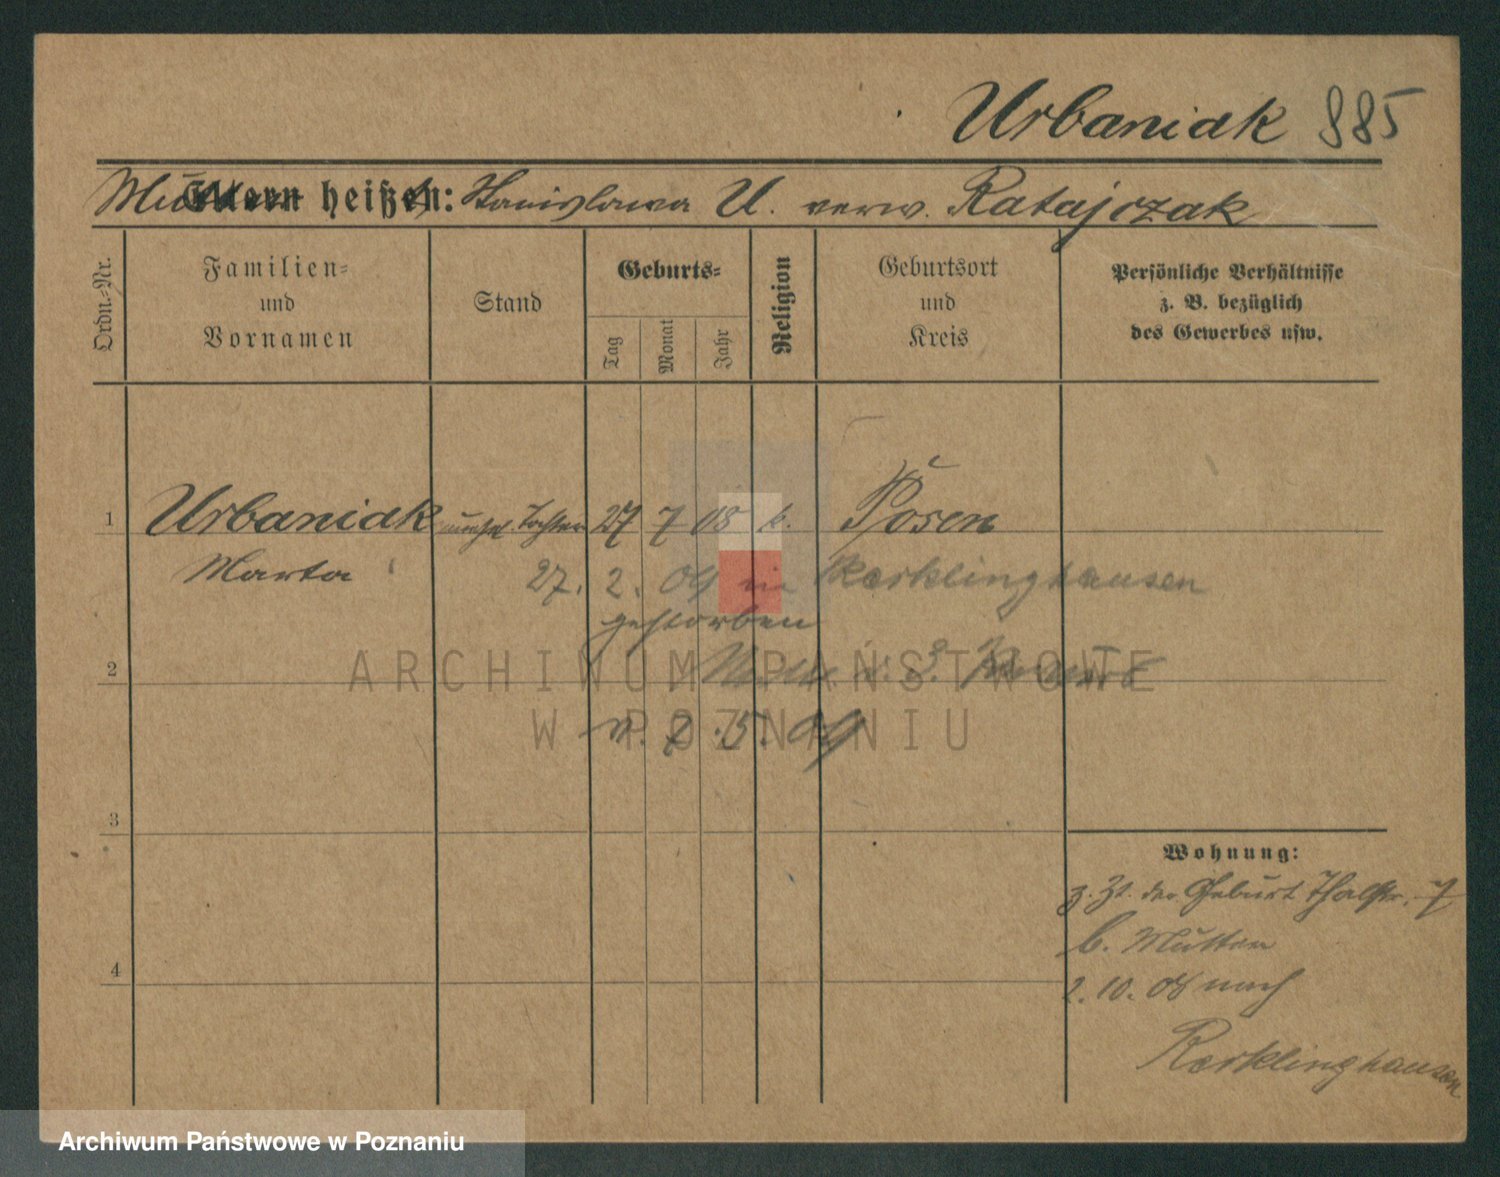 Urbaniak 885
Eltern heißen: Stanislawa U. verw. Ratajczak
Ordn.-Nr.
Familien-
und
Vornamen
Stand
Geburts-
Tag
Monat
Jahr
Religion
Geburtsort
und
Kreis
Persönliche Verhältnisse
z. B. bezüglich
des Gewerbes usw.
1 Urbaniak unehel. Tochter 27 7 08 k. Posen
Marta 27. 2. 09 in Recklinghausen
gestorben
2
v. 2. 5. 09
ARCHIWUM PAŃSTWOWE
W POZNANIU
3
Wohnung:
z. Zt. der Geburt Thalstr. 7
b. Mutter
4
2. 10. 08 nach
Recklinghausen
Archiwum Państwowe w Poznaniu